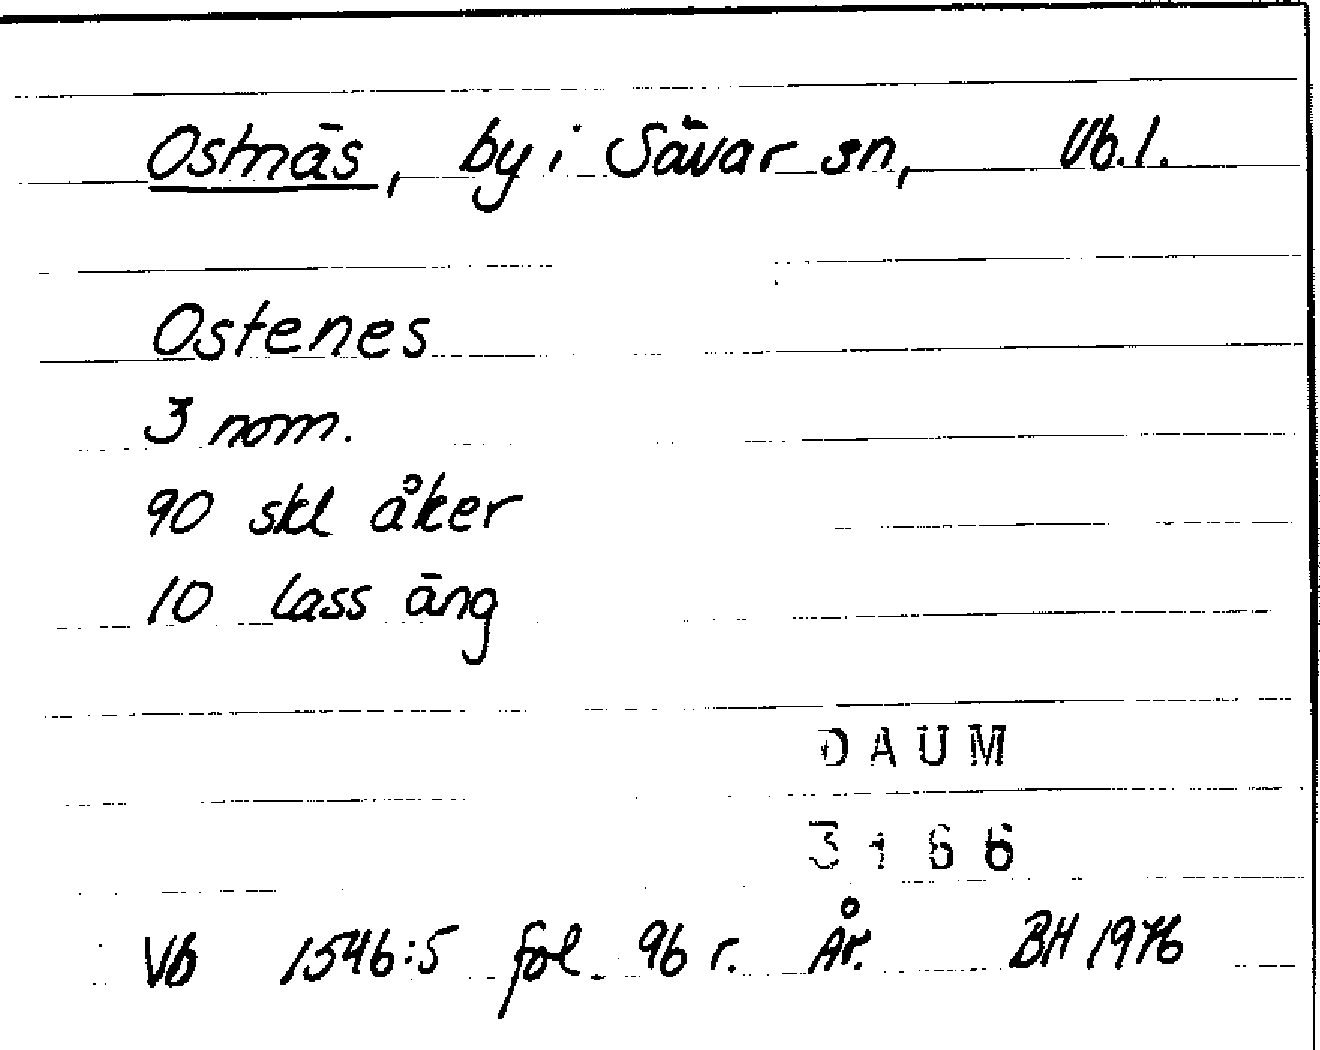 Ostnäs, by i Sävar sn, Vb.l.
Ostenes
3 nom.
90 skl åker
10 lass äng
DAUM
3166
Vb 1546:5 fol. 96 r. År. BH 1976